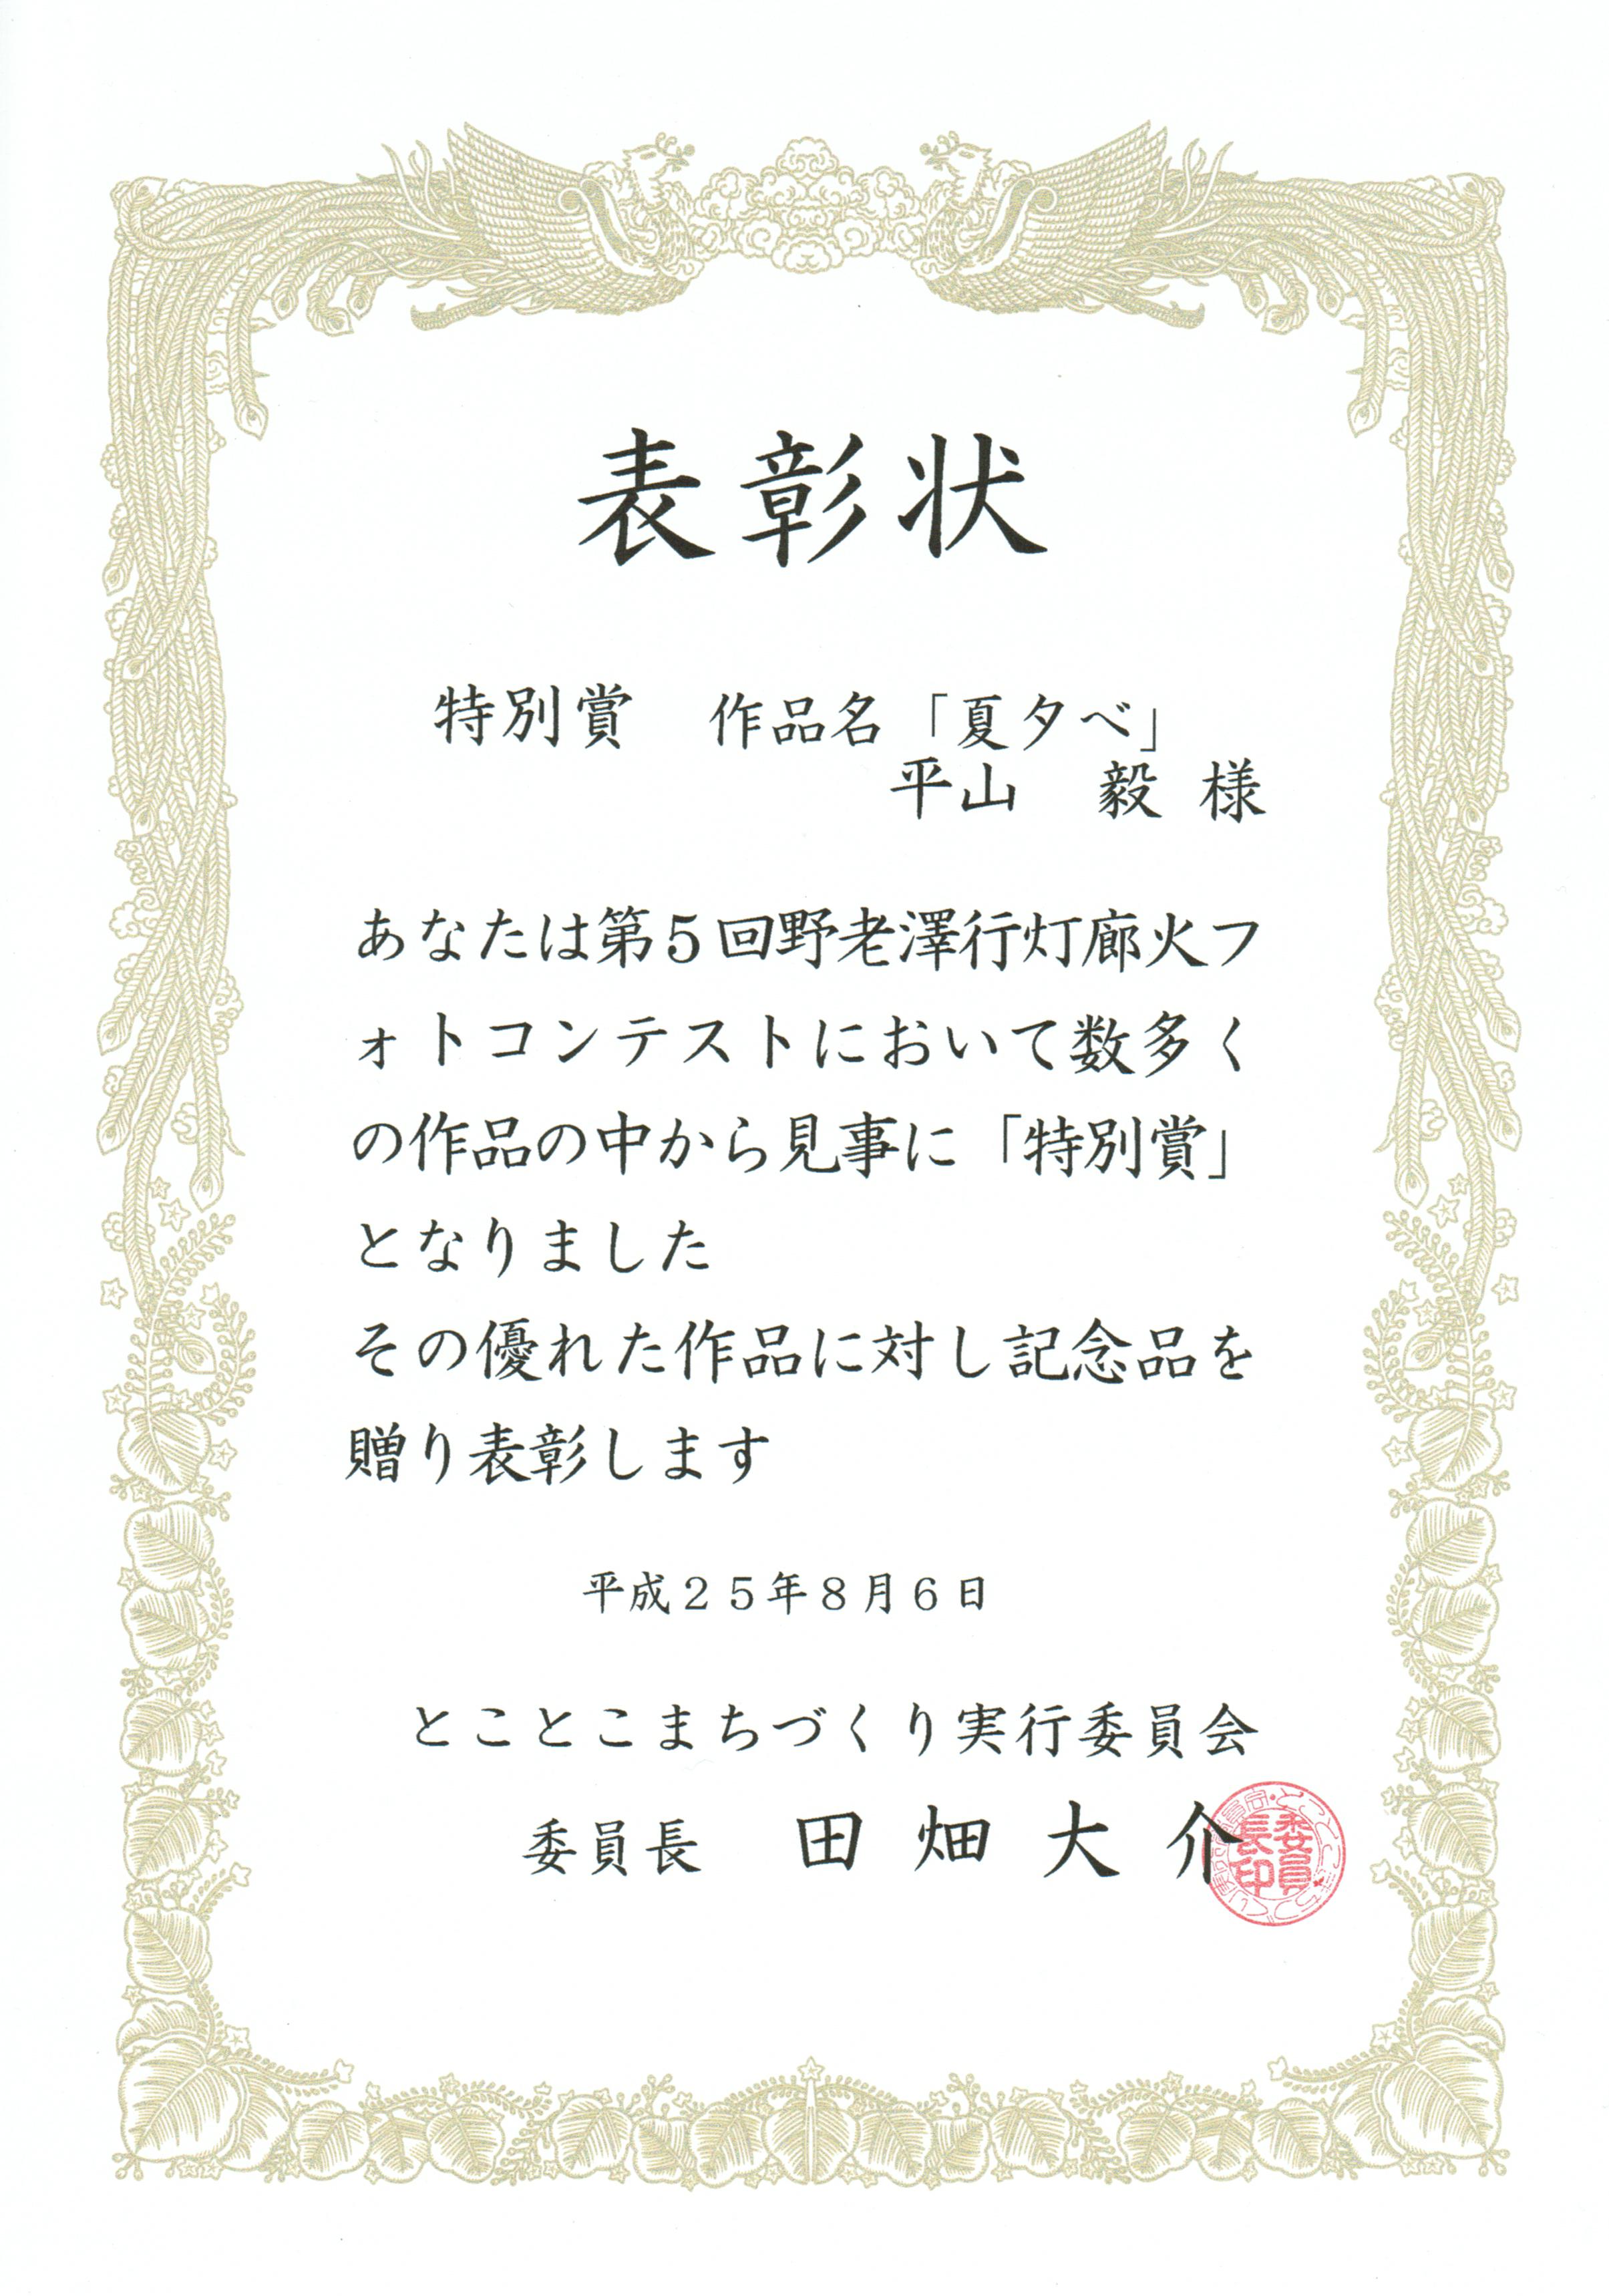 表彰状
特別賞　作品名「夏夕べ」
平山　毅 様
あなたは第５回野老澤行灯廊火フ
ォトコンテストにおいて数多く
の作品の中から見事に「特別賞」
となりました
その優れた作品に対し記念品を
贈り表彰します
平成２５年８月６日
とことこまちづくり実行委員会
委員長　田畑大介
委員長印